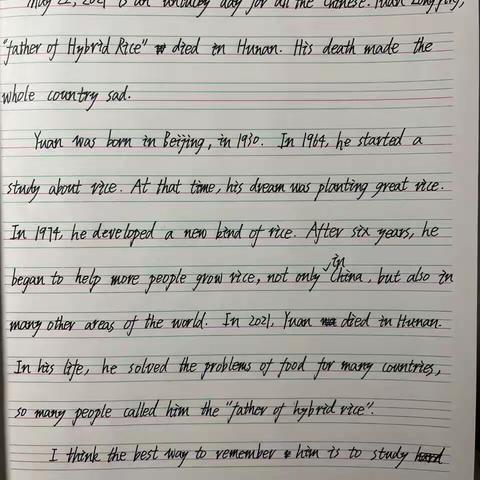 May 22, 2021 is an unlucky day for all the Chinese. Yuan Longping,
"father of Hybrid Rice" died in Hunan. His death made the
whole country sad.
Yuan was born in Beijing, in 1930. In 1964, he started a
study about rice. At that time, his dream was planting great rice.
In 1974, he developed a new kind of rice. After six years, he
began to help more people grow rice, not only in China, but also in
many other areas of the world. In 2021, Yuan died in Hunan.
In his life, he solved the problems of food for many countries,
so many people called him the "father of hybrid rice".
I think the best way to remember him is to study